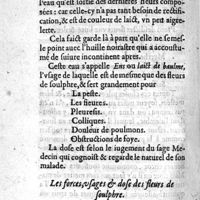 l'eau qu'est sortie des dernieres fleurs compo-
sées; car celle-cy n'a pas tant besoin de rectifi-
cation, & est de couleur de laict, vn peu aigre-
lette.
Cela faict garde là à part qu'elle ne se mes-
le point auec l'huille noirastre qui a accoustu-
mé de suiure incontinent apres.
Ceste eau s'appelle Eau ou laict de soulfre,
l'vsage de laquelle est de mesme que des fleurs
de soulphre, & sert grandement pour
La peste.
Les fieures.
Pleuresis.
Colliques.
Douleur de poulmons.
Obstructions de foye.
La dose est selon le iugement du sage Me-
decin qui cognoist & regarde le naturel de son
malade.
Les forces, vsages & dose des fleurs de
soulphre.